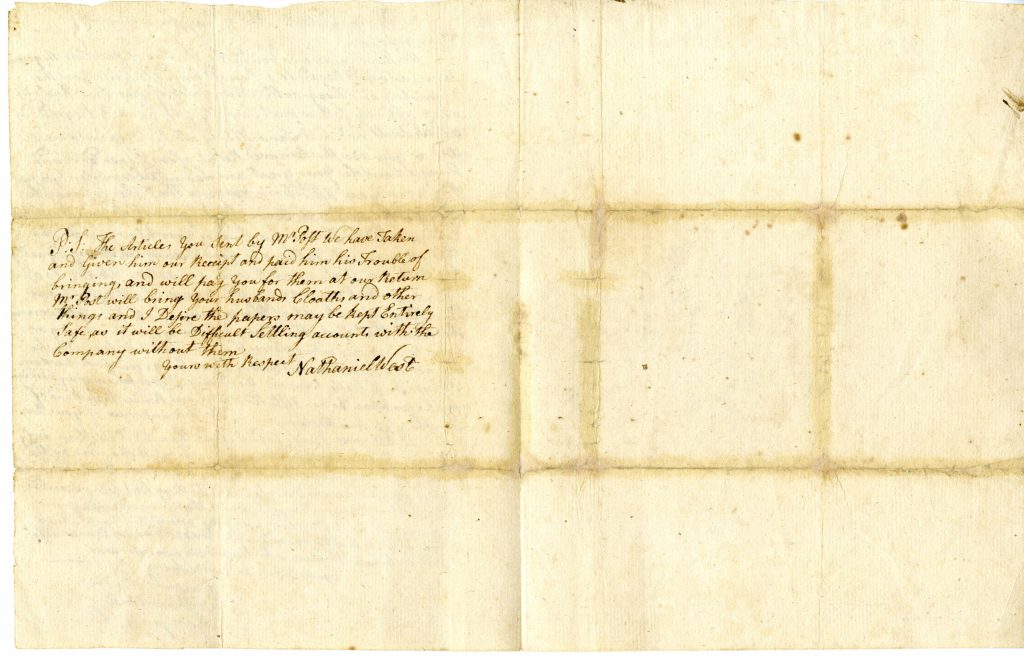 P: S: The Articles You Sent by Mr Post We have Taken
and Given him our Receipt and paid him his Trouble of
bringing, and will pay You for them at our Return
Mr Post will bring Your husbands Cloaths and other
things and I Desire the papers may be kept Entirely
Safe as it will be Difficult Settling accounts with the
Company without them
Yours with Respect Nathaniel West